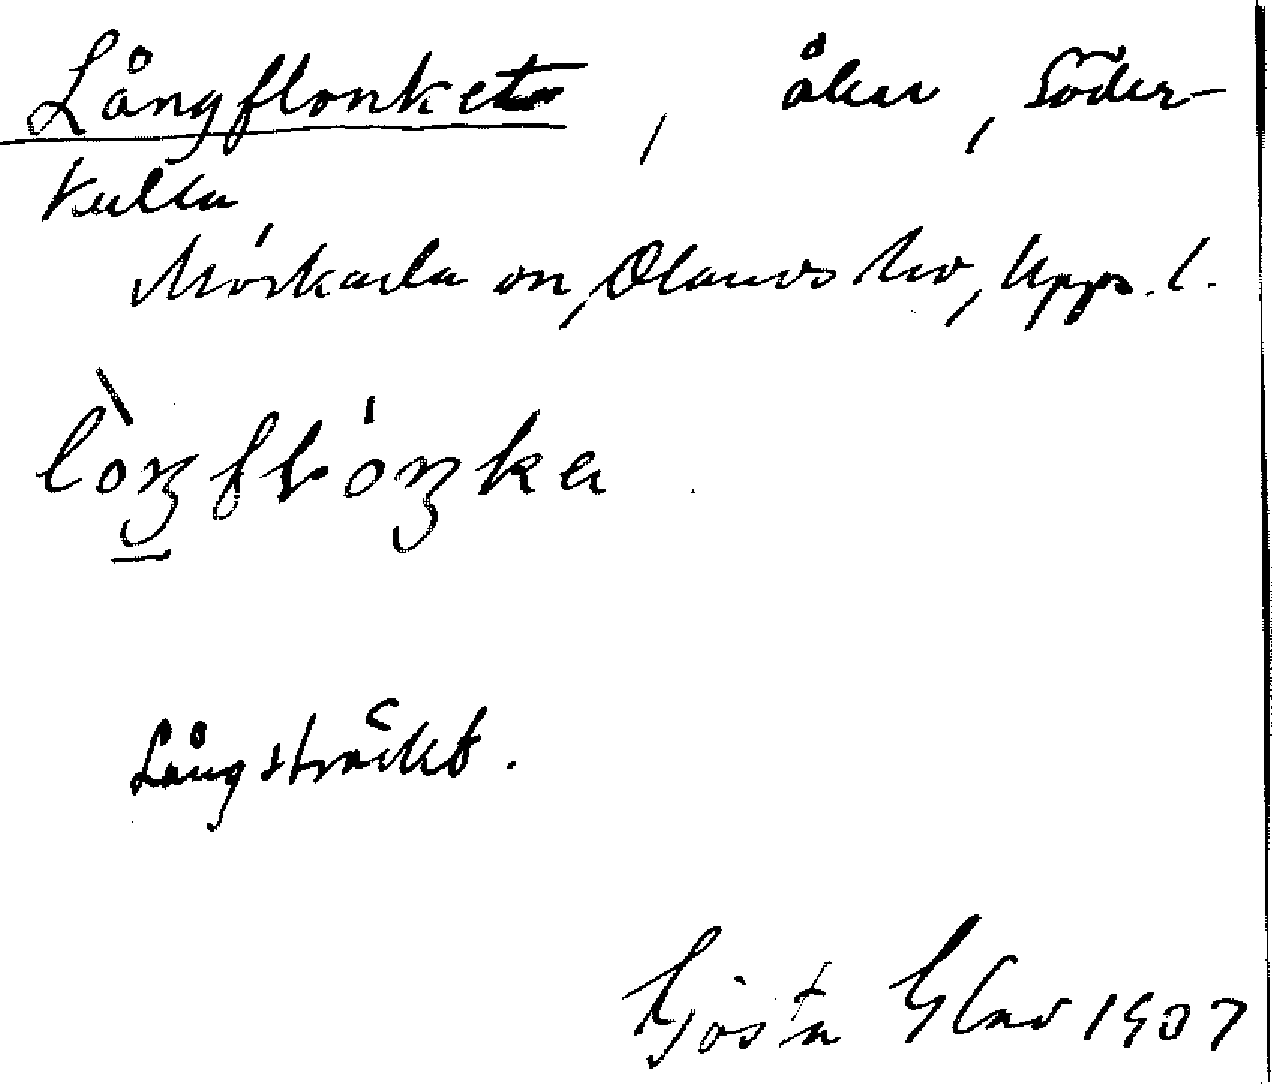 Långflonket, åker, Söder-
kulla
Mörkarla sn, Olands hd, Upps. l.
lòŋflóŋka
Långsträckt.
Gösta Glad 1907